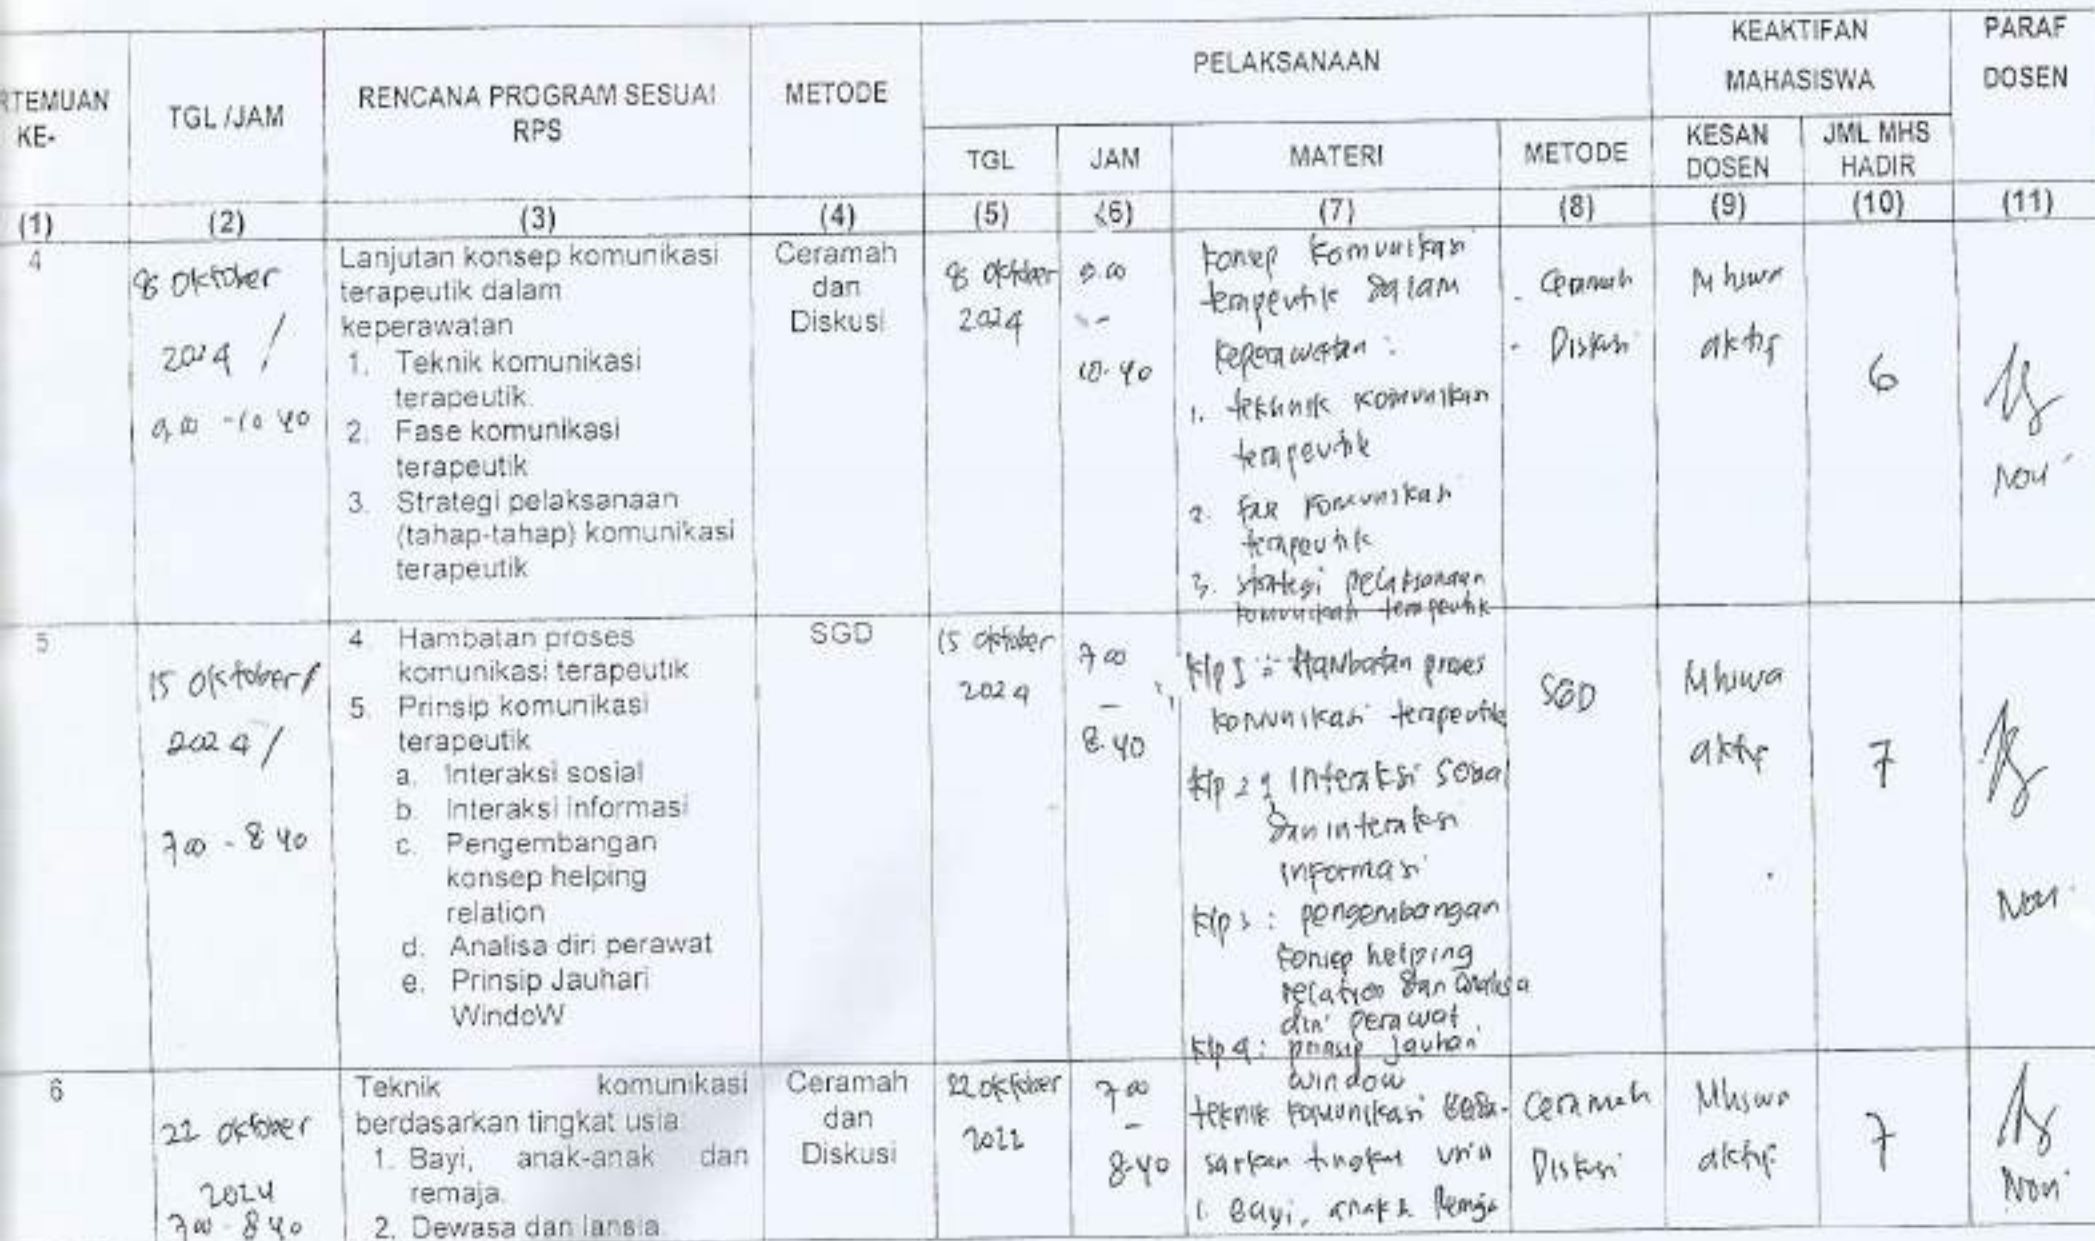 RTEMUAN KE-
TGL /JAM
RENCANA PROGRAM SESUAI
RPS
METODE
PELAKSANAAN
KEAKTIFAN
MAHASISWA
PARAF
DOSEN
TGL
JAM
MATERI
METODE
KESAN
DOSEN
JML MHS
HADIR
(1)
(2)
(3)
(4)
(5)
(6)
(7)
(8)
(9)
(10)
(11)
4
8 Oktober
2024 /
9.00 - 10 40
Lanjutan konsep komunikasi
terapeutik dalam
keperawatan
1. Teknik komunikasi
terapeutik.
2. Fase komunikasi
terapeutik
3. Strategi pelaksanaan
(tahap-tahap) komunikasi
terapeutik
Ceramah
dan
Diskusi
8 Oktober
2024
9.00
-
10.40
Konsep Komunikasi
terapeutik dalam
keperawatan :
1. tekhnik komunikasi
terapeutik
2. fase komunikasi
terapeutik
3. strategi pelaksanaan
komunikasi terapeutik
- Ceramah
- Diskusi
Mhswa
aktif
6
Novi
5
15 Oktober /
2024 /
7 00 - 8 40
4. Hambatan proses
komunikasi terapeutik
5. Prinsip komunikasi
terapeutik
a. Interaksi sosial
b. Interaksi informasi
c. Pengembangan
konsep helping
relation
d. Analisa diri perawat
e. Prinsip Jauhari
WindoW
SGD
15 Oktober
2024
7 00
-
8.40
Klp 1 : Hambatan proses
komunikasi terapeutik
Klp 2 : Interaksi sosial
dan interaksi
informasi
Klp 3 : pengembangan
konsep helping
relation dan analisa
diri perawat
Klp 4 : prinsip jauhari
window
SGD
Mhswa
aktif
7
Novi
6
22 oktober
2024
7 00 - 8 40
Teknik komunikasi
berdasarkan tingkat usia
1. Bayi, anak-anak dan
remaja.
2. Dewasa dan lansia.
Ceramah
dan
Diskusi
22 oktober
2022
7 00
-
8.40
teknik komunikasi berda-
sarkan tingkat usia
1. Bayi, anak & Remja
Ceramah
Diskusi
Mhswa
aktif
7
Novi